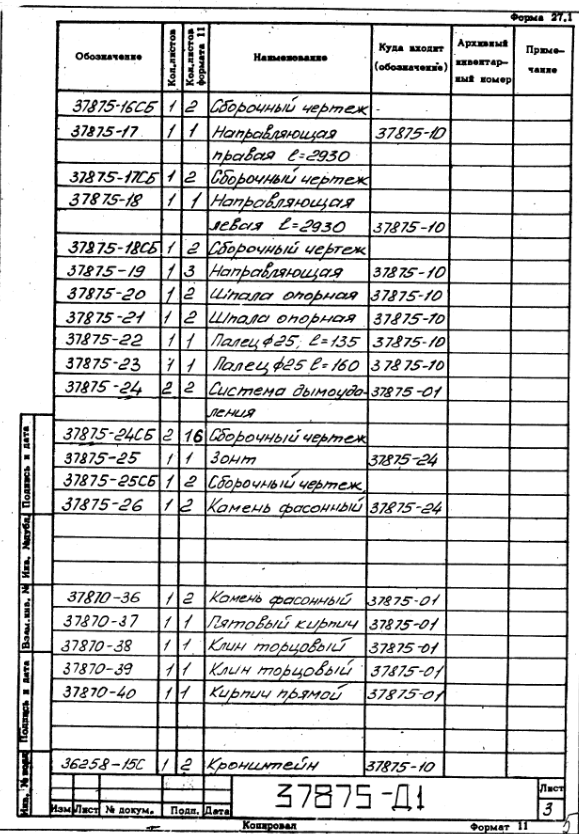 Форма 27.1
Обозначение Кол.листов Кол.листов формата 11 Наименование Куда входит (обозначение) Архивный инвентар-ный номер Приме-чание
37875-16СБ 1 2 Сборочный чертеж -
37875-17 1 1 Направляющая 37875-10
правая ℓ=2930
37875-17СБ 1 2 Сборочный чертеж
37875-18 1 1 Направляющая
левая ℓ=2930 37875-10
37875-18СБ 1 2 Сборочный чертеж
37875-19 1 3 Направляющая 37875-10
37875-20 1 2 Шпала опорная 37875-10
37875-21 1 2 Шпала опорная 37875-10
37875-22 1 1 Палец ϕ25, ℓ=135 37875-10
37875-23 1 1 Палец ϕ25 ℓ=160 37875-10
37875-24 2 2 Система дымоуда- 37875-01
ления
37875-24СБ 2 16 Сборочный чертеж
37875-25 1 1 Зонт 37875-24
37875-25СБ 1 2 Сборочный чертеж
37875-26 1 2 Камень фасонный 37875-24
37870-36 1 2 Камень фасонный 37875-01
37870-37 1 1 Пятовый кирпич 37875-01
37870-38 1 1 Клин торцовый 37875-01
37870-39 1 1 Клин торцовый 37875-01
37870-40 1 1 Кирпич прямой 37875-01
36258-15С 1 2 Кронштейн 37875-10
Инв. № подл Подпись и дата Взам.инв. № Инв. №дубл. Подпись и дата
37875-Д1
Лист
3
Изм Лист № докум. Подп. Дата
Копировал Формат 11